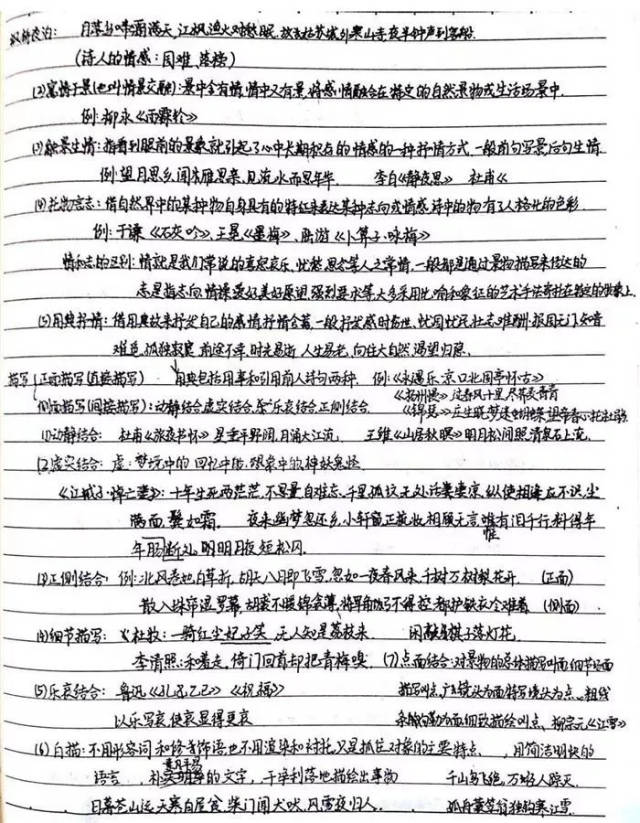 枫桥夜泊: 月落乌啼霜满天,江枫渔火对愁眠,姑苏城外寒山寺夜半钟声到客船
(诗人的情感:困难、落榜)
(2)寓情于景(也叫情景交融):景中含有情,情中又有景,将感情融合在特定的自然景物或生活场景中.
例:柳永《雨霖铃》
(3)触景生情:指看到眼前的景象就引起了心中长期积存的情感的一种抒情方式.一般前句写景后句生情.
例:望月思乡,闻雁思亲,见流水而思年华. 李白《静夜思》 杜甫《
(4)托物言志:借自然界中的某种物自身具有的特征来表达某种志向或情感,诗中的物有了人格化的色彩.
例:于谦《石灰吟》,王冕《墨梅》,陆游《卜算子·咏梅》
情和志的区别:情就是我们常说的喜怒哀乐、忧愁思念等人之常情,一般都是通过景物描写来传达的
志是指志向、情操、爱好、美好愿望、强烈要求等,大多采用比喻和象征的艺术手法寄托在特定的
(5)用典抒情:借用典故来抒发自己的感情,抒情含蓄,一般抒发感时伤世、忧国忧民、壮志难酬、报国无门、知音
难觅、孤独寂寞、前途不幸,时光易逝,人生易老,向往大自然,渴望归隐.
描写 正面描写(直接描写) 用典包括用事和引用前人诗句两种. 例:《永遇乐·京口北固亭怀古》
《扬州慢》过春风十里,尽荠麦青青
侧面描写(间接描写):动静结合、虚实结合、乐哀结合、正侧结合. 《锦瑟》庄生晓梦迷蝴蝶,望帝春心托杜鹃.
(1)动静结合: 杜甫《旅夜书怀》星垂平野阔,月涌大江流. 王维《山居秋暝》明月松间照,清泉石上流.
(2)虚实结合: 虚:梦境中的 回忆中的
《江城子·悼亡妻》:十年生死两茫茫,不思量,自难忘,千里孤坟无处话凄凉,纵使相逢应不识,尘
满面,鬓如霜. 夜来幽梦忽还乡,小轩窗,正梳妆,相顾无言,唯有泪千行,料得年
惟
年肠断处,明月夜,短松冈.
(3)正侧结合: 例:北风卷地白草折,胡天八月即飞雪,忽如一夜春风来,千树万树梨花开. (正面)
散入珠帘湿罗幕,狐裘不暖锦衾薄,将军角弓不得控,都护铁衣冷难着 (侧面)
(4)细节描写: 杜牧:一骑红尘妃子笑,无人知是荔枝来. 闲敲棋子落灯花.
李清照:和羞走,倚门回首却把青梅嗅. (7)点面结合:对景物的总体描写叫面,细节
(5)乐哀结合: 鲁迅《孔乙己》《祝福》 描写叫点,广镜头为面,特写镜头为点、粗线
以乐写哀,使哀显得更哀 条勾勒为面,细致描绘叫点、柳宗元《江雪》
(6)白描:不用形容词和修饰语,也不用渲染和衬托,只是抓住对象的主要特点 ,用简洁明快的
语言, 的文字,干净利落地描绘出事物 千山鸟飞绝,万径人踪灭.
日暮苍山远,天寒白屋贫,柴门闻犬吠,风雪夜归人. 孤舟蓑笠翁,独钓寒江雪.